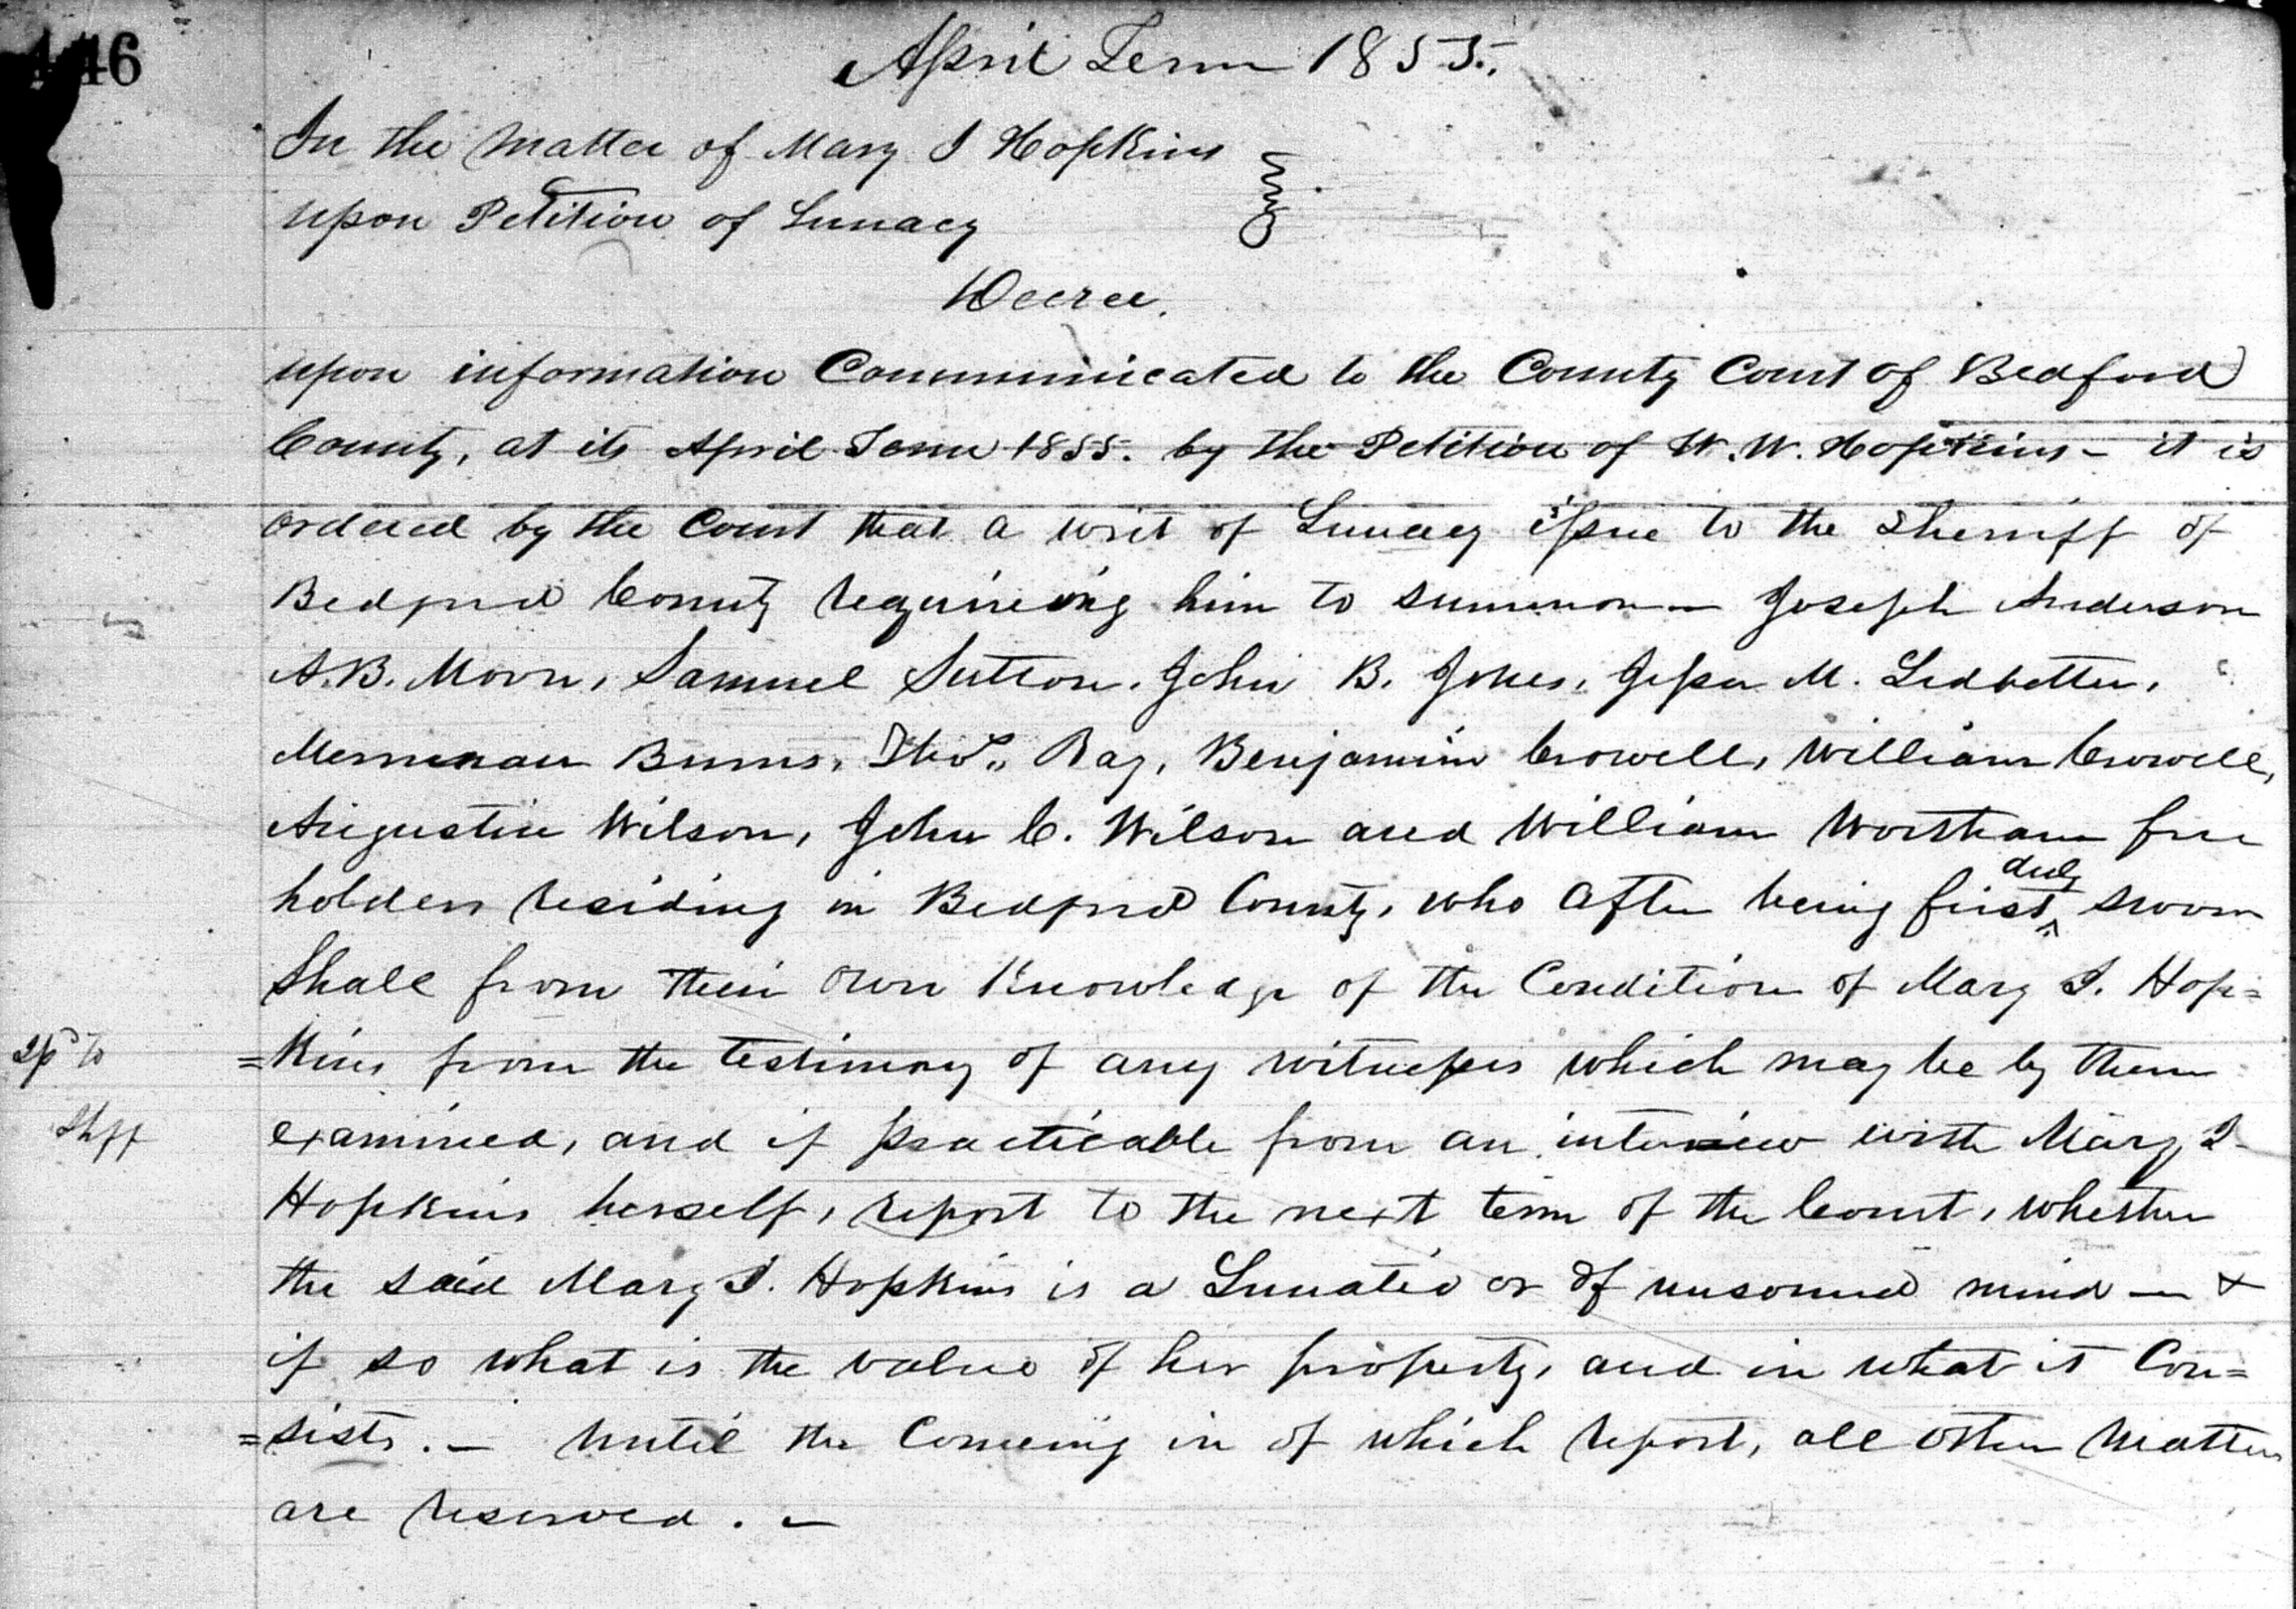 446
April Term 1855.
In the Matter of Mary I Hopkins
upon Petition of Lunacy
Decree.
upon information Communicated to the County Court of Bedford
County, at its April Term 1855. by the Petition of W. W. Hopkins - it is
ordered by the Court that a writ of Lunacy issue to the Sheriff of
Bedford County requireing him to summon — Joseph Anderson
A. B. Moon, Samuel Sutton, John B. Jones, Jesse M. Ledbetter,
Merriman Burns, Thos. Ray, Benjamin Crowell, William Crowell,
Augustin Wilson, John C. Wilson and William Wortham free
holders residing in Bedford County, who after being first duly sworn
Shall from their own Knowledge of the Condition of Mary I. Hop=
=kins from the testimony of any witnesses which may be by them
examined, and if practicable from an interview with Mary I
Hopkins herself, report to the next term of the Court, whether
the said Mary I. Hopkins is a Lunatic or of unsound mind — &
if so what is the value of her property, and in what it Con=
=sists. — Until the Comeing in of which report, all other Matters
are reserved. —
to
Shff